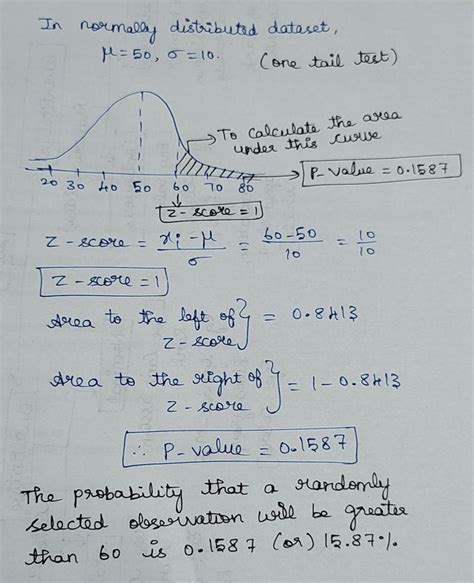 In normally distributed dataset,
μ=50, σ=10.
(one tail test)
To calculate the area
under this curve
P-value = 0.1587
20 30 40 50 60 70 80
Z-score = 1
Z-score = xᵢ-μ / σ = 60-50 / 10 = 10 / 10
Z-score = 1
Area to the left of } = 0.8413
Z-score
Area to the right of } = 1-0.8413
Z-score
∴ P-value = 0.1587
The probability that a randomly
selected observation will be greater
than 60 is 0.1587 (or) 15.87%.